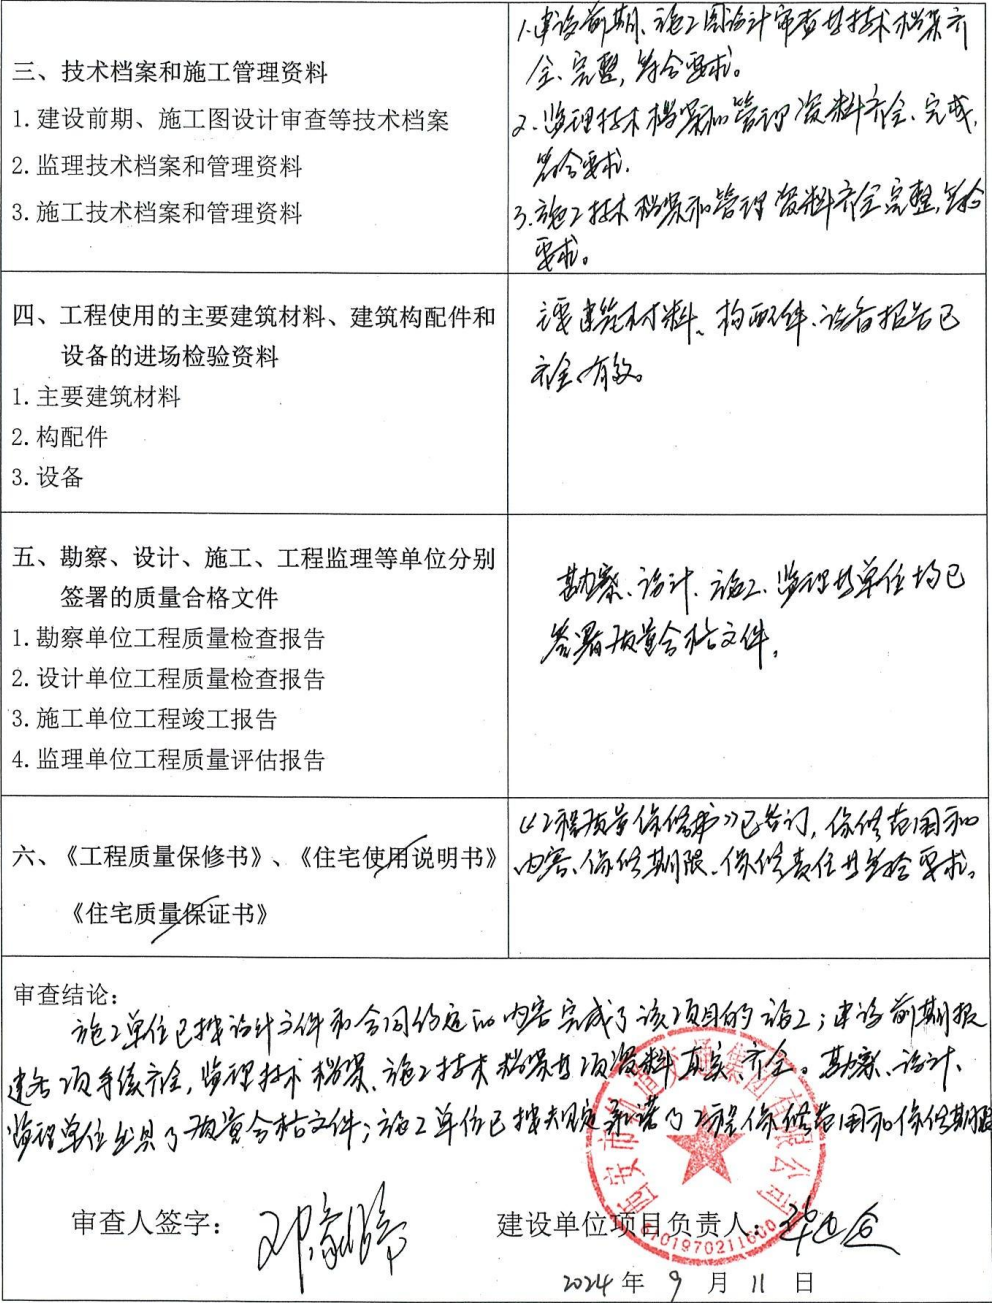 三、技术档案和施工管理资料
1.建设前期、施工图设计审查等技术档案
2.监理技术档案和管理资料
3.施工技术档案和管理资料
1.建设前期、施工图设计审查等技术档案齐
全、完整,符合要求。
2.监理技术档案和管理资料齐全、完成,
符合要求.
3.施工技术档案和管理资料齐全完整,符合
要求。
四、工程使用的主要建筑材料、建筑构配件和
设备的进场检验资料
1.主要建筑材料
2.构配件
3.设备
主要建筑材料、构配件、设备报告已
齐全、有效。
五、勘察、设计、施工、工程监理等单位分别
签署的质量合格文件
1.勘察单位工程质量检查报告
2.设计单位工程质量检查报告
3.施工单位工程竣工报告
4.监理单位工程质量评估报告
勘察、设计、施工、监理等单位均已
签署质量合格文件。
六、《工程质量保修书》、《住宅使用说明书》
《住宅质量保证书》
《工程质量保修书》已签订,保修范围和
内容、保修期限、保修责任等符合要求。
审查结论:
施工单位已按设计文件和合同约定的内容完成了该项目的施工;建设前期报
建各项手续齐全,监理技术档案、施工技术档案等项资料真实齐全。勘察、设计、
监理单位出具了质量合格文件;施工单位已按规定承诺了工程保修范围和保修期限
西安市轨道交通集团有限公司
审查人签字:
建设单位项目负责人:
2024年9月11日